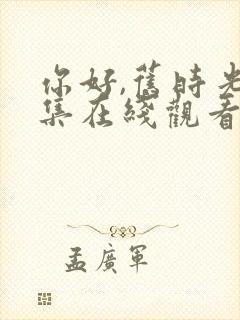 你好,舊時光
集在綫觀看
孟廣軍